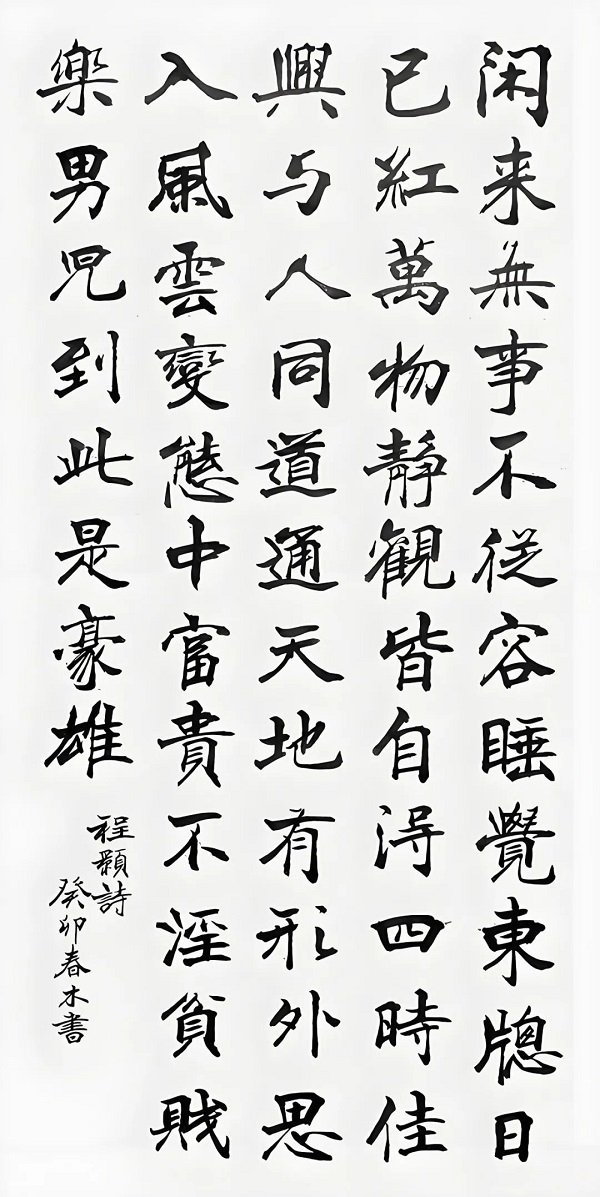 闲来無事不従容睡覺東牕日
已紅萬物靜観皆自淂四時佳
興与人同道通天地有形外思
入風雲變態中富貴不淫貧賎
樂男児到此是豪雄
程顥詩
癸卯春木書